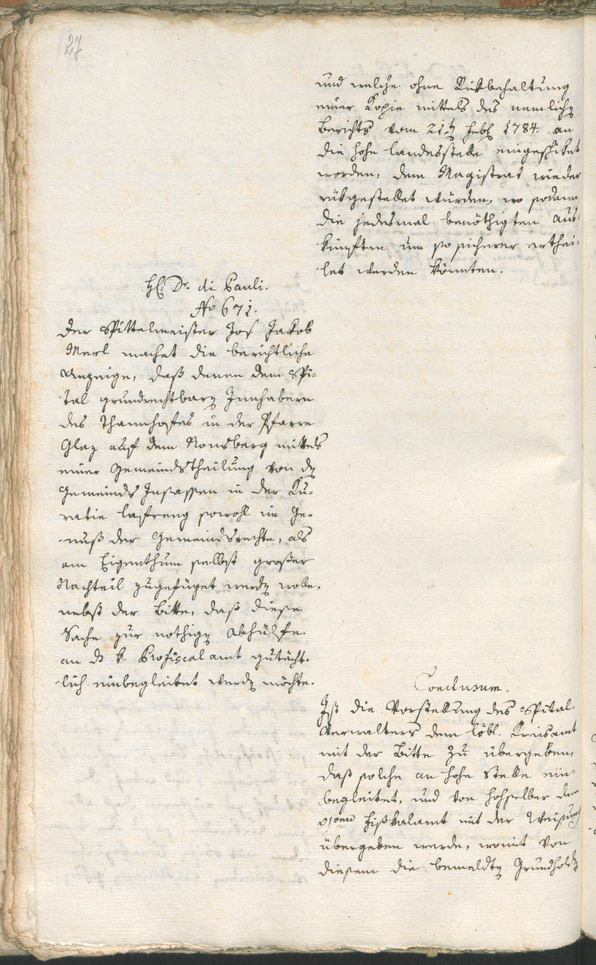 27
und welche ohne Rükbehaltung
einer Kopie mittels des nemlichen
Berichts vom 21ten 1784 an
die hohe Landesstelle eingeschiket
worden, dem Magistrat wieder
rükgestellet würden, wo sodann
die jedesmal benöthigten Aus-
künften um so sicherer erthei-
let werden könnten.
H: Dr. di Pauli.
No 671.
Der Spittelmeister Jos Jakob
Merl machet die berichtliche
Anzeige, daß denen dem Spi-
tal grundrechtbaren Innhabern
des Thannhofes in der Pfarre
auf dem Nonsberg mittels
einer Gemeindstheilung von den
Gemeinds Insassen in der Ku-
ratie sowohl im Ge-
nuß der Gemeindsrechte, als
am Eigenthum selbst großer
Nachteil zugefüget werden wolle,
nebst der Bitte, daß diese
Sache zur nöthigen Abhülfe
an d k. amt gutächt-
lich einbegleitet werden möchte.
Conclusum.
Ist die Vorstellung des Spital
Verwalters dem löbl. Kreisamt
mit der Bitte zu übergeben,
daß solche an hohe Stelle ein-
begleitet, und von hochselber dem
Fißkalamt mit der Weisung
übergeben werde, womit von
diesem die bemeldten Grundholden